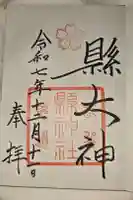 縣大神
令和七年十二月十日
奉拝
縣神社